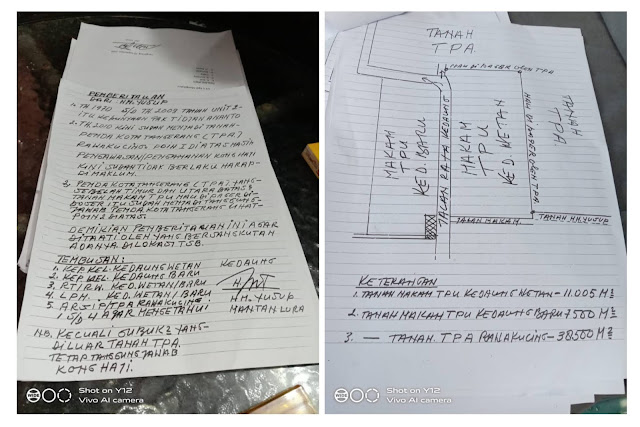 PEMBERITAUAN
DARI HM. YUSUP
1. TH 1970 S/D TH 2009 TANAH UNIT 2
ITU KEPUNYAAN PAK TIDJAN ANANTO
2. TH 2010 KINI SUDAH MENJADI TANAH
PEMDA KOTA TANGERANG (TPA)
RAWAKUCING POIN 1 DIATAS
PENGAWASAN/PENGAMANAN KONG HAJI
KINI SUDAH TIDAK BERLAKU HARAP
DIMAKLUM.
3. PEMDA KOTA TANGERANG (TPA) YANG
SEBELAH TIMUR DAN UTARA BATAS
TANAH MAKAM TPU MAU DIPAGER
ITU SUDAH MENJADI TANGGUNG
JAWAB PEMDA KOTA TANGERANG
POIN 2 DIATAS
DEMIKIAN PEMBERITAUAN INI AGAR
DITAATI OLEH YANG BERSANGKUTAN
ADANYA DILOKASI TSB.
TEMBUSAN: KEDAUNG
1. KEP. KEL. KEDAUNG WETAN
2. KEP. KEL. KEDAUNG BARU
3. RT/RW. KED. WETAN/BARU
4. LPM. KED. WETAN/BARU
5. ARSIP TPA RAWAKUCING
1 S/D 4 AGAR MENGETAHUI
HM. YUSUP
MANTAN LURA
NB. KECUALI GUBUK2 YANG
DILUAR TANAH TPA.
TETAP TANGGUNG JAWAB
KONG HAJI.
Shot on Y12
Vivo AI camera
TANAH
TPA.
MAU DI PAGER OLEH TPA
MAKAM
TPU
KED. BARU
JALAN RAYA KEDAUNG
MAKAM
TPU
KED. WETAN
MAU DI PAGER OLEH TPA
TANAH
TPA
JALAN MAKAM
TANAH HM. YUSUP
KETERANGAN
1. TANAH MAKAM TPU KEDAUNG WETAN - 11.005 M2
2. TANAH MAKAM TPU KEDAUNG BARU 7500 M2
3. — TANAH. TPA RAWAKUCING - 38500 M2
Shot on Y12
Vivo AI camera